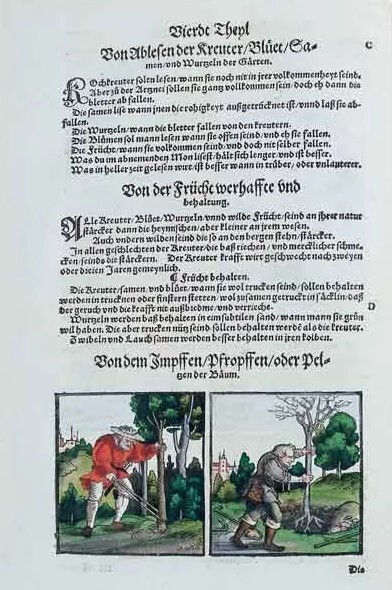 Vierdt Theyl
Von Ablesen der Kreuter/Blüet/Sa-
men/vnd Wurtzeln der Gärten.
C
KOchkreuter soltu lesen/wann sie noch nit in jrer volkommenheyt seind.
Aber zu der Artznei sollen sie gantz volkommen sein/doch eh dann die
bletter ab fallen.
Die samen lise wann jnen die rohigkeyt außgetrücknet ist/vnnd laß sie ab-
fallen.
Die Wurtzeln/wann die bletter fallen von den kreutern.
Die Blümen sol mann lesen wann sie offen seind/vnd eh sie fallen.
Die Frücht/wann sie volkommen seind/vnd doch nit selber fallen.
Was du im abnemenden Mon lisest/hält sich lenger/vnd ist besser.
Was in heller zeit gelesen wirt/ist besser wann in trüber/oder vnlauterer.
Von der Frücht werhaffte vnd
behaltung.
ALle Kreuter/Blüet/Wurtzeln/vnnd wilde Frücht/seind an jhrer natur
stärcker dann die heymschen/aber kleiner an jrem wesen.
Auch vndern wilden seind die so an den bergen stehn/stärcker.
In allen geschlechten der Kreuter/die baß riechen/vnd mercklicher schme-
cken/seinds die stärckern. Der Kreuter krafft wirt geschwecht nach zweyen
oder dreien Jaren gemeynlich.
¶ Frücht behalten.
Die Kreuter/samen/vnd blüet/wann sie wol trucken seind/sollen behalten
werden in trucknen oder finstern stetten/wol zusamen getruckt in säcklin/daß
der geruch vnd die krafft nit außbrdme/vnd verrieche.
D
Wurtzeln werden baß behalten in eim subtilen sand/wann mann sie grün
wil haben. Die aber trucken nütz seind/sollen behalten werdē als die kreuter.
Zwibeln vnd Lauch samen werden besser behalten in jren kolben.
Von dem Impffen/Pfropffen/oder Pel-
tzen der Bäum.
Die